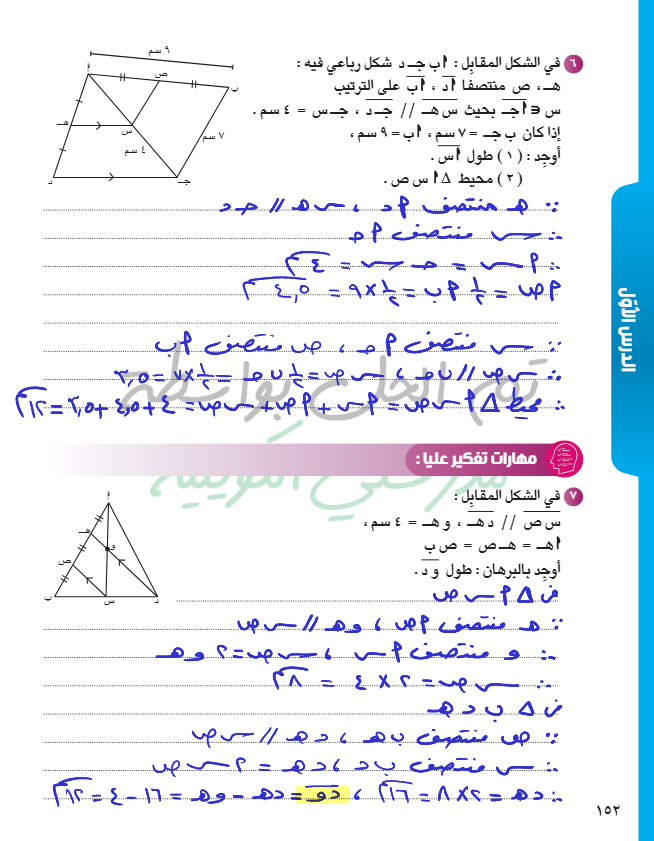 ٦ في الشكل المقابل : ا ب جـ د شكل رباعي فيه :
هـ ، ص منتصفا ا د ، ا ب على الترتيب
س ∈ ا جـ بحيث س هـ // جـ د ، جـ س = ٤ سم .
إذا كان ب جـ = ٧ سم ، ا ب = ٩ سم ،
أوجد : (١) طول ا س .
(٢) محيط Δ ا س ص .
٩ سم
ا
ص
ب
هـ
س
٧ سم
٤ سم
د
جـ
∵ هـ منتصف م د ، س هـ // جـ د
∴ س منتصف م جـ
∴ م س = جـ س = ٤ سم
م ص = ١/٢ م ب = ١/٢ × ٩ = ٤,٥ سم
∵ س منتصف م جـ ، ص منتصف م ب
∴ س ص // ب جـ ، س ص = ١/٢ ب جـ = ١/٢ × ٧ = ٣,٥
∴ محيط Δ م س ص = م س + م ص + س ص = ٤ + ٤,٥ + ٣,٥ = ١٢ سم
تم الحل بواسطة
مدرستي الكويتية
مهارات تفكير عليا :
٧ في الشكل المقابل :
س ص // د هـ ، و هـ = ٤ سم ،
ا هـ = هـ ص = ص ب
أوجد بالبرهان : طول و د .
ا
هـ
و
ص
ب
س
د
في Δ م س ص
∵ هـ منتصف م ص ، و هـ // س ص
∴ و منتصف م س ، س ص = ٢ و هـ
∴ س ص = ٢ × ٤ = ٨ سم
في Δ ب د هـ
∵ ص منتصف ب هـ ، د هـ // س ص
∴ س منتصف ب د ، د هـ = ٢ س ص
∴ د هـ = ٢ × ٨ = ١٦ سم ، د و = د هـ - و هـ = ١٦ - ٤ = ١٢ سم
الدرس الأول
١٥٢